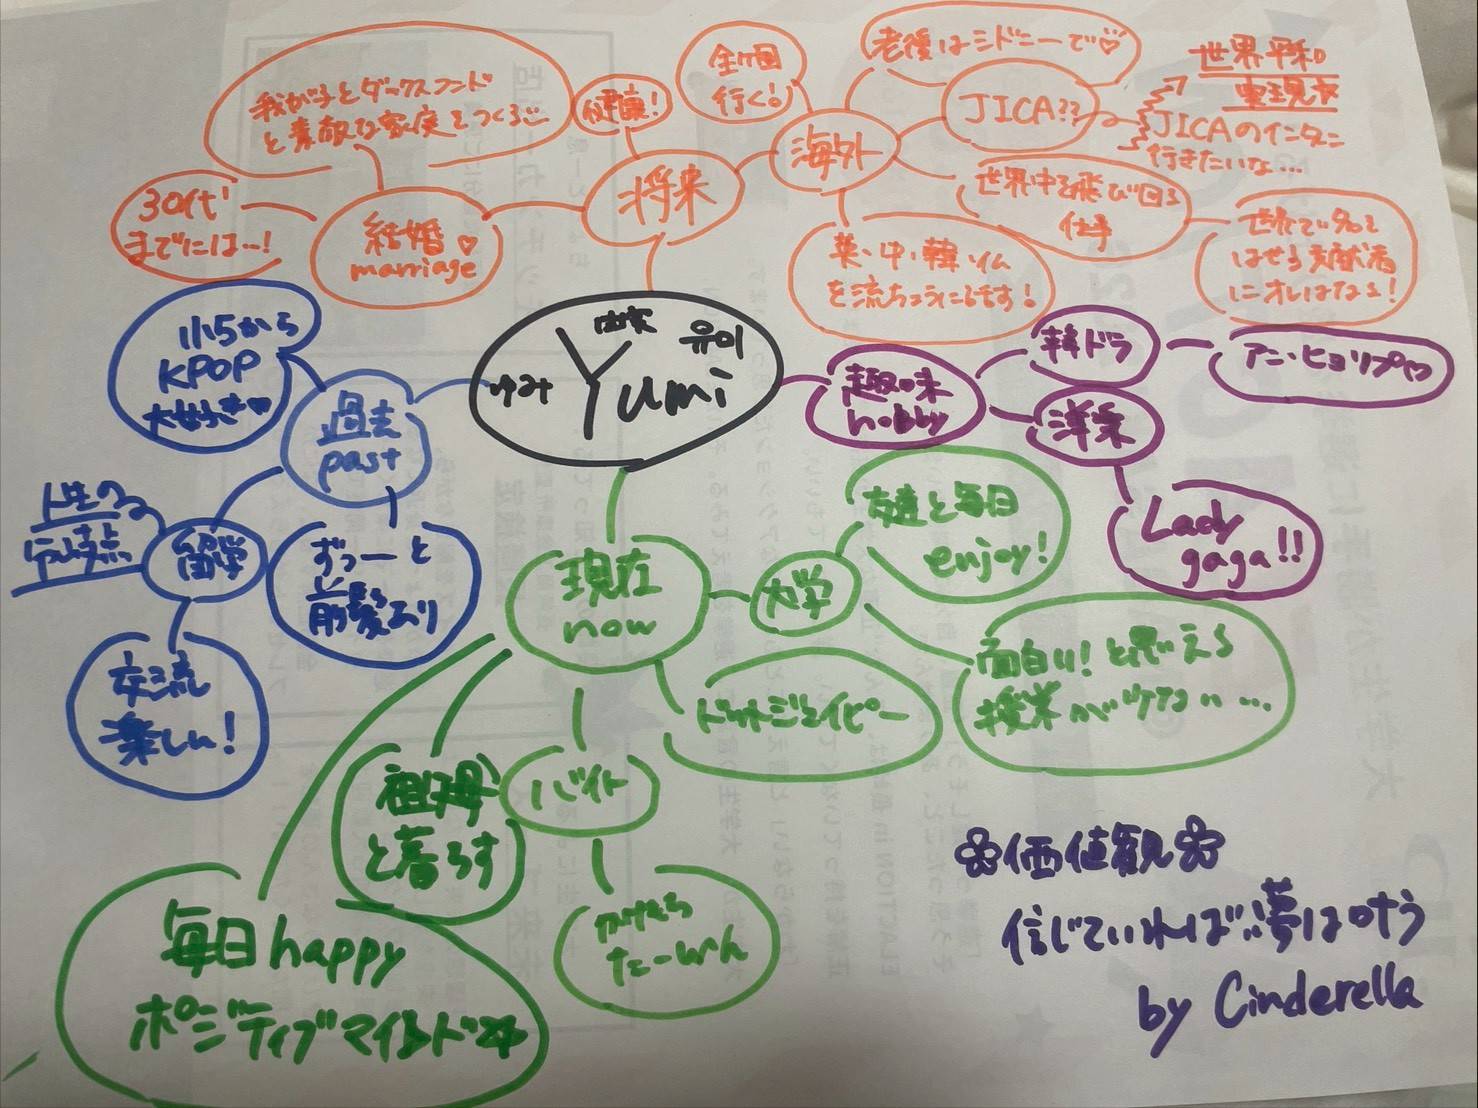 我が子とダックスフンド
と素敵な家庭をつくる
健康!
行く!
老後はシドニーで♡
世界平和
実現☆
JICA??
JICAのインターン
行きたいな…
海外
将来
結婚♡
marriage
30代
までにはー!
世界中を飛び回る
仕事
英・中・韓・仏
を流ちょうに話す!
世界で名を
はせる貢献者
にオレはなる!
小5から
KPOP
大好き♡
過去
past
ゆみ
Yumi
趣味
hobby
韓ドラ
アン・ヒョソプ
洋楽
Lady
gaga!!
人生の
留学
ずっーと
前髪あり
交流
楽しい!
現在
now
大学
友達と毎日
enjoy!
面白い!と思える
授業が
ドットジェイピー
バイト
祖父母
と暮らす
毎日happy
ポジティブマインド
価値観
信じていれば夢は叶う
by Cinderella